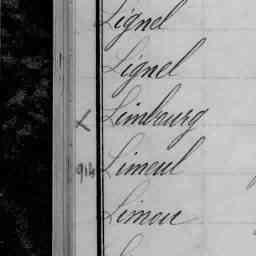 Lignel
Lignel
X Limbourg
914 Limeul
Limou